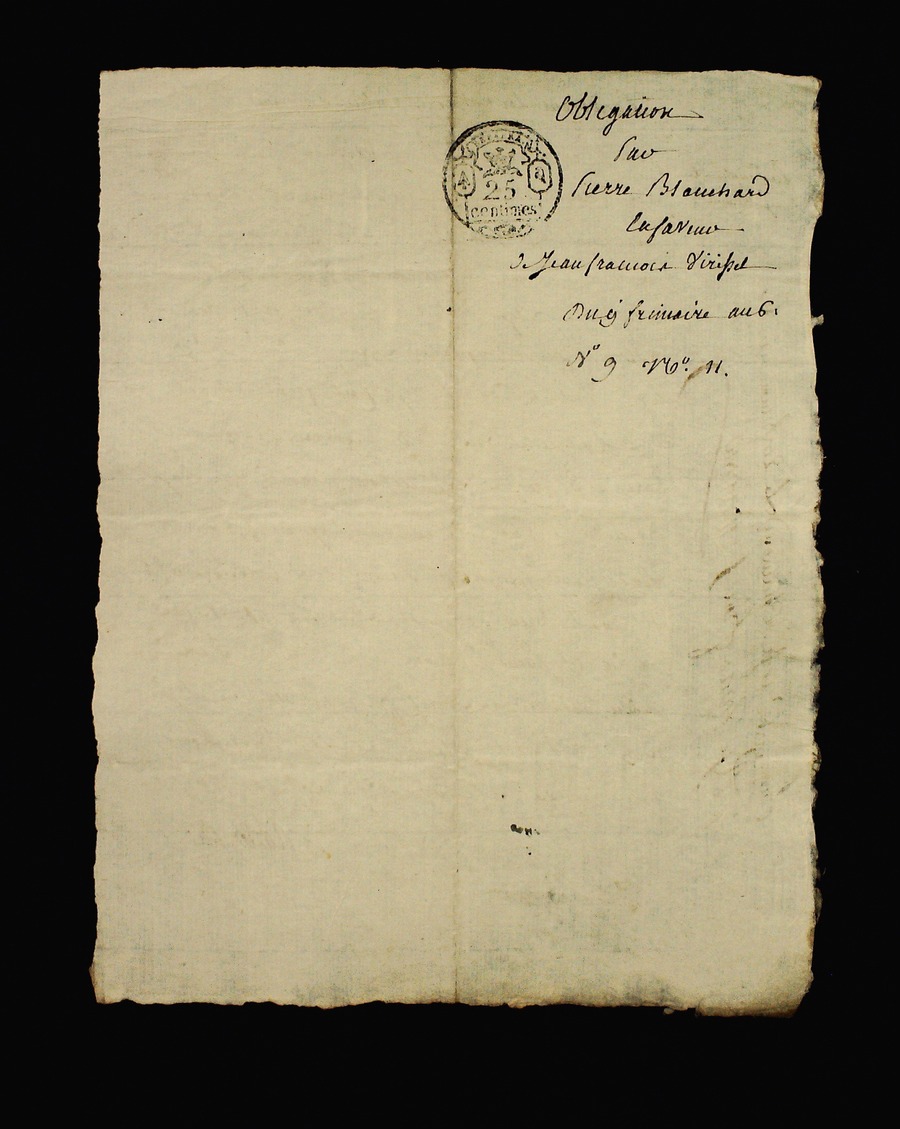 Obligation
Par
Pierre Blanchard
En faveur
de Jean francois
Du 9 frimaire an 6.
N° 9 11.
25
centimes